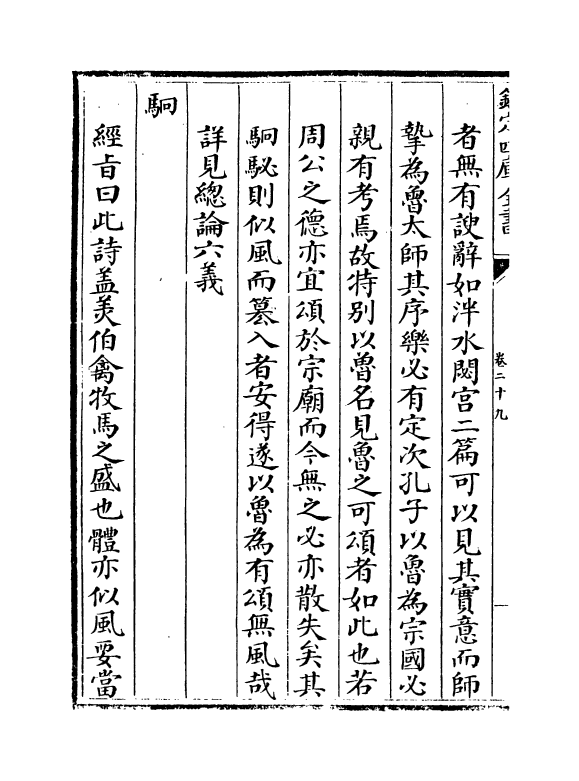 欽定四庫全書
卷二十九
者無有諛辭如泮水閟宫二篇可以見其實意而師
摯為魯太師其序樂必有定次孔子以魯為宗國必
親有考焉故特别以魯名見魯之可頌者如此也若
周公之德亦宜頌於宗廟而今無之必亦散失矣其
駉駜則似風而纂入者安得遂以魯為有頌無風哉
詳見總論六義
駉
經旨曰此詩盖羙伯禽牧馬之盛也體亦似風要當